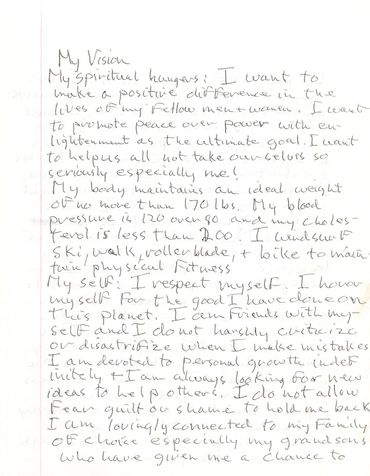 My Vision
My spiritual hungers: I want to
make a positive difference in the
lives of my fellow men + women. I want
to promote peace over power with en-
lightenment as the ultimate goal. I want
to help us all not take ourselvs so
seriously especially me!
My body maintains an ideal weight
of no more than 170 lbs. My blood
pressure is 120 over 90 and my choles-
terol is less than 200. I windsurf
ski, walk, rollerblade, + bike to main-
tain physical fitness
My self: I respect myself. I honor
myself for the good I have done on
this planet. I am friends with my-
self and I do not harshly criticize
or disastrifize when I make mistakes
I am devoted to personal growth indef
initely + I am always looking for new
ideas to help others. I do not allow
fear guilt or shame to hold me back
I am lovingly connected to my family
of choice especially my grandsons
who have given me a chance to